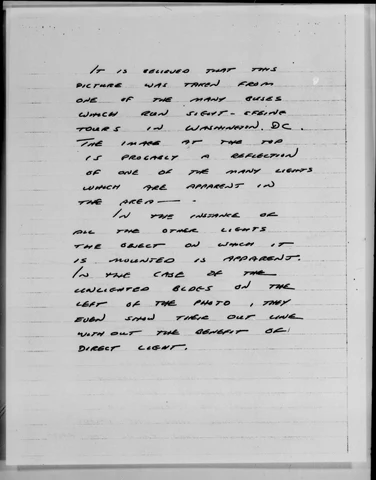 IT IS BELIEVED THAT THIS
PICTURE WAS TAKEN FROM
ONE OF THE MANY BUSES
WHICH RUN SIGHT-SEEING
TOURS IN WASHINGTON, DC.
THE IMAGE AT THE TOP
IS PROBABLY A REFLECTION
OF ONE OF THE MANY LIGHTS
WHICH ARE APPARENT IN
THE AREA —
IN THE INSTANCE OF
ALL THE OTHER LIGHTS
THE OBJECT ON WHICH IT
IS MOUNTED IS APPARENT.
IN THE CASE OF THE
UNLIGHTED BLDGS ON THE
LEFT OF THE PHOTO, THEY
EVEN SHOW THEIR OUT LINE
WITH OUT THE BENEFIT OF
DIRECT LIGHT.